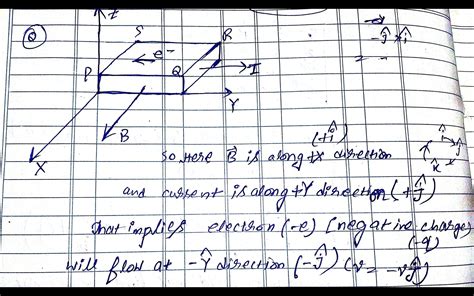 Q
Z
S
R
-ĵ × î
e-
P
Q
I
= -
Y
B
X
(+î)
So, Here B⃗ is along +X direction
î ĵ
k̂
and current is along +Y direction (+ĵ)
That implies electron (-e) [negative charge]
(-q)
will flow at -Ŷ direction (-ĵ) (v = -vĵ)